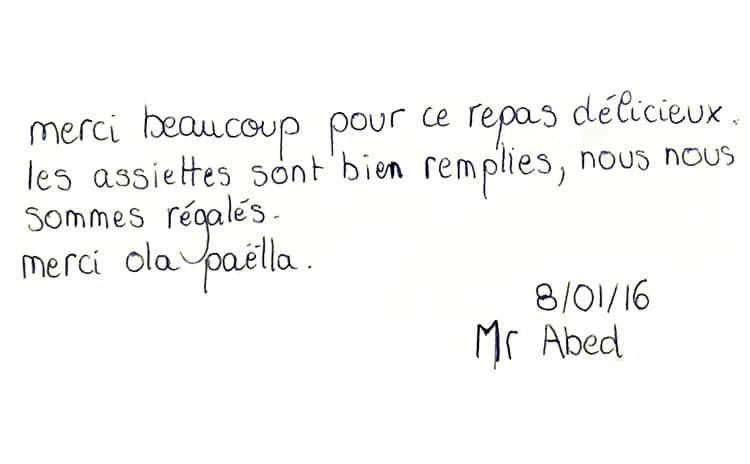 merci beaucoup pour ce repas délicieux.
les assiettes sont bien remplies, nous nous
sommes régalés.
merci ola paëlla.
8/01/16
Mr Abed